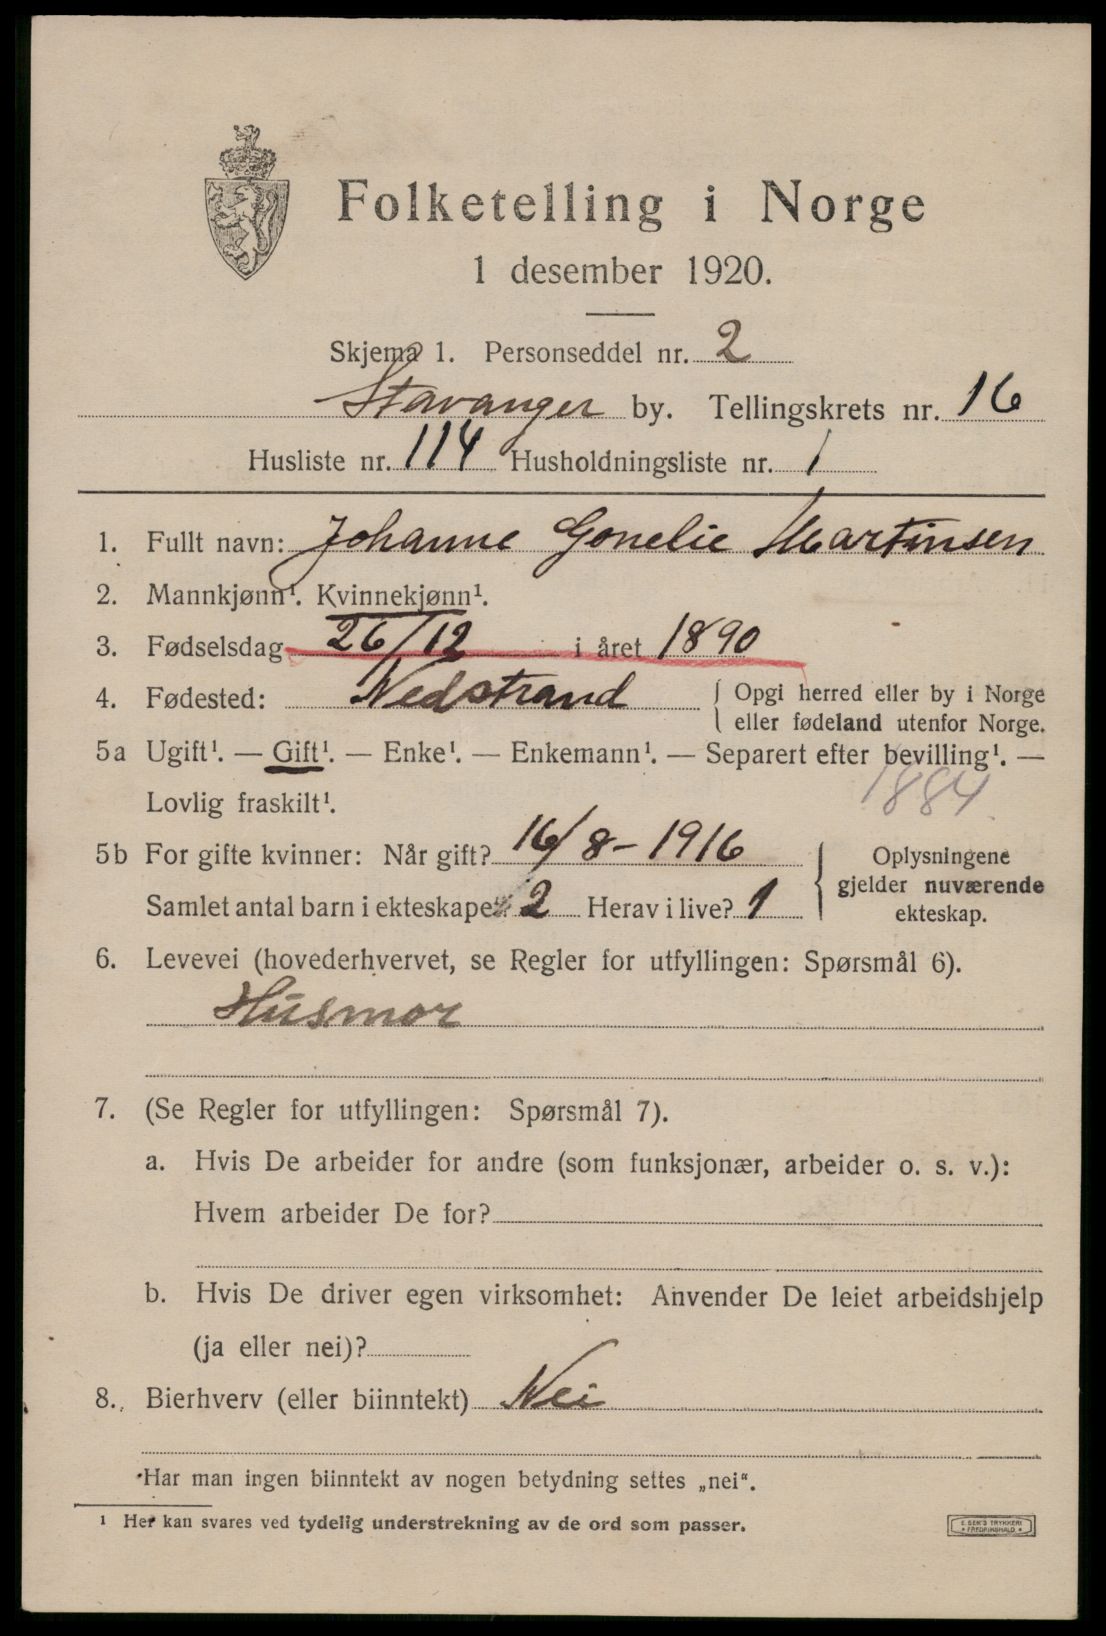 Folketelling i Norge
1 desember 1920.
Skjema 1. Personseddel nr. 2
Stavanger by. Tellingskrets nr. 16
Husliste nr. 114 Husholdningsliste nr. 1
1. Fullt navn: Johanne Gonelie Martinsen
2. Mannkjønn¹. Kvinnekjønn¹.
3. Fødselsdag 26/12 i året 1890
4. Fødested: Nedstrand { Opgi herred eller by i Norge
eller fødeland utenfor Norge.
5a Ugift¹. — Gift¹. — Enke¹. — Enkemann¹. — Separert efter bevilling¹. —
Lovlig fraskilt¹.
1884
5b For gifte kvinner: Når gift? 16/8-1916
Samlet antal barn i ekteskapet? 2 Herav i live? 1
{ Oplysningene
gjelder nuværende
ekteskap.
6. Levevei (hovederhvervet, se Regler for utfyllingen: Spørsmål 6).
Husmor
7. (Se Regler for utfyllingen: Spørsmål 7).
a. Hvis De arbeider for andre (som funksjonær, arbeider o. s. v.):
Hvem arbeider De for?
b. Hvis De driver egen virksomhet: Anvender De leiet arbeidshjelp
(ja eller nei)?
8. Bierhverv (eller biinntekt) Nei
Har man ingen biinntekt av nogen betydning settes „nei“.
¹ Her kan svares ved tydelig understrekning av de ord som passer.
TRYKKERI
FREDRIKSHALD